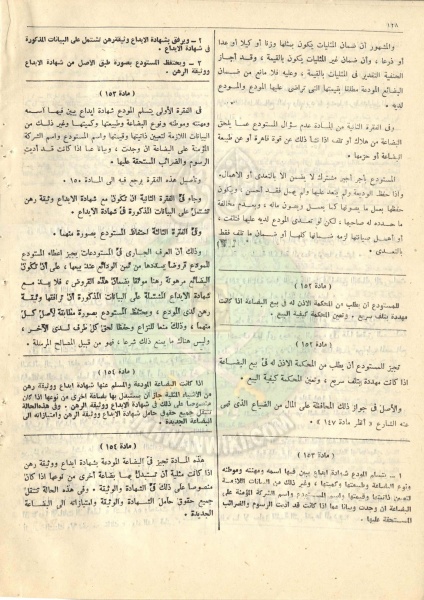 ١٢٨
والمشهور أن ضمان المثليات يكون بمثلها وزنا أو كيلا أو عدا
أو ذرعا ، وأن ضمان غير المثليات يكون بالقيمة ، وقد أجاز
الحنفية التقدير فى المثليات بالقيمة ، وعليه فلا مانع من ضمان
البضائع المودعة مطلقا بقيمتها التى تراضى عليها المودع والمودع
لديه .
وفى الفقرة الثانية من المادة عدم سؤال المستودع عما يلحق
البضاعة من هلاك أو تلف اذا نشأ ذلك عن قوة قاهرة أو عن طبيعة
البضاعة أو حزمها .
المستودع بأجر أجير مشترك لا يضمن الا بالتعدى أو الاهمال،
واذا حفظ الوديعة ولم يتعد عليها ولم يهمل فقد أحسن ، ويكون
حفظها بعمل ما يصونها كما يعمل ويصون ماله ، وبعدم مخالفة
ما حدده له صاحبها ، لكن لو تعدى المودع لديه عليها فتلفت ،
أو أهمل صيانتها لزمه ضمانها كلها، أو ضمان ما تلف فقط
بالتعدى .
( مادة ١٥٢ )
للمستودع أن يطلب من المحكمة الاذن له فى بيع البضاعة اذا كانت
مهددة بتلف سريع . وتعين المحكمة كيفية البيع .
( مادة ١٥٢ )
تجيز للمستودع أن يطلب من المحكمة الاذن له فى بيع البضاعة
اذا كانت مهددة بتلف سريع ، وتعين المحكمة كيفية البيع .
والأصل فى جواز ذلك المحافظة على المال من الضياع الذى نهى
عنه الشارع « أنظر مادة ١٤٧ » .
( مادة ١٥٣ )
١ - يتسلم المودع شهادة ايداع يبين فيها اسمه ومهنته وموطنه
ونوع البضاعة وطبيعتها وكميتها ، وغير ذلك من البيانات اللازمة
لتعيين ذاتيتها وقيمتها واسم المستودع واسم الشركة المؤمنة على
البضاعة ان وجدت وبيانا عما اذا كانت قد أديت الرسوم والضرائب
المستحقة عليها .
٢ - ويرفق بشهادة الايداع وثيقة رهن تشتمل على البيانات المذكورة
فى شهادة الايداع .
٣ - ويحتفظ المستودع بصورة طبق الأصل من شهادة الايداع
ووثيقة الرهن .
( مادة ١٥٣ )
فى الفقرة الأولى يتسلم المودع شهادة ايداع يبين فيها اسمه
ومهنته وموطنه ونوع البضاعة وطبيعتها وكميتها وغير ذلك من
البيانات اللازمة لتعيين ذاتيتها وقيمتها واسم المستودع واسم الشركة
المؤمنة على البضاعة ان وجدت ، وبيانا عما اذا كانت قد أديت
الرسوم والضرائب المستحقة عليها .
وتأصيل هذه الفقرة يرجع فيه الى المادة ١٥٠ .
وجاء فى الفقرة الثانية أن تكون مع شهادة الايداع وثيقة رهن
تشتمل على البيانات المذكورة فى شهادة الايداع .
وفى الفقرة الثالثة احتفاظ المستودع بصورة منهما .
وذلك أن العرف الجارى فى المستودعات يجيز اعطاء المستودع
المودع قروضا يسددها من ثمن الودائع عند بيعها ، على أن تكون
البضائع مرهونة رهنا موثقا بضمان هذه القروض ، فلابد مع
شهادة الايداع المشتملة على البيانات المذكورة أن ترافقها وثيقة
رهن لدى المودع ، ويحتفظ المستودع بصورة مطابقة لأصل كل
منهما ، وذلك منعا للنزاع وحفظا لحق كل طرف لدى الآخر ،
وليس هناك ما يمنع ذلك شرعا ، فهو من قبيل المصالح المرسلة .
( مادة ١٥٤ )
اذا كانت البضاعة المودعة والمسلم عنها شهادة ايداع ووثيقة رهن
من الأشياء المثلية جاز أن يستبدل بها بضاعة أخرى من نوعها اذا كان
منصوصا على ذلك فى شهادة الايداع ووثيقة الرهن . وفى هذه الحالة
تنتقل جميع حقوق حامل شهادة الايداع ووثيقة الرهن وامتيازاته الى
البضاعة الجديدة .
( مادة ١٥٤ )
هذه المادة تجيز فى البضاعة المودعة بشهادة ايداع ووثيقة رهن
اذا كانت مثلية أن تستبدل بها بضاعة أخرى من نوعها اذا كان
منصوصا على ذلك فى الشهادة والوثيقة . وفى هذه الحالة تنتقل
جميع حقوق حامل الشهادة والوثيقة وامتيازاته الى البضاعة
الجديدة .